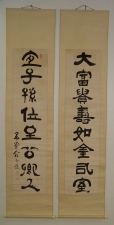 大富貴壽如金石室
宜子孫位至公卿